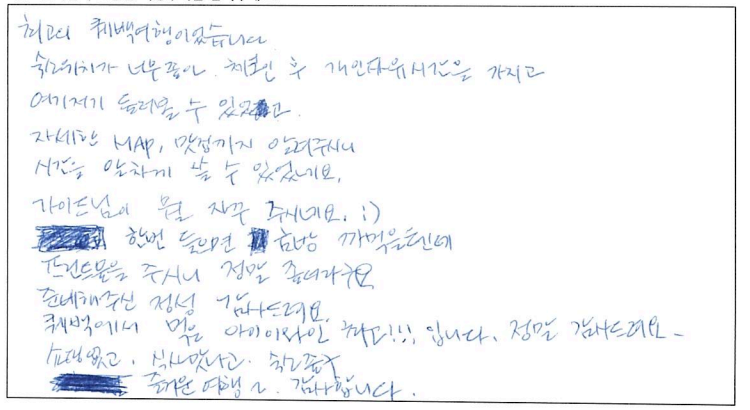 최고의 퀘백여행이었습니다
숙소위치가 너무좋아. 체크인 후 개인자유시간을 가지고
여기저기 둘러볼 수 있었고.
자세한 MAP, 맛집까지 알려주시니
시간을 알차게 쓸 수 있었네요.
가이드님이 뭘 자꾸 주시네요. :)
한번 들으면 금방 까먹을텐데
프린트물을 주시니 정말 좋더라구요
준비해주신 정성 감사드려요.
퀘백에서 먹은 아이스와인 최고!!! 입니다. 정말 감사드려요-
쇼핑없고. 식사맛나고. 숙소좋구
즐거운 여행 감사합니다.